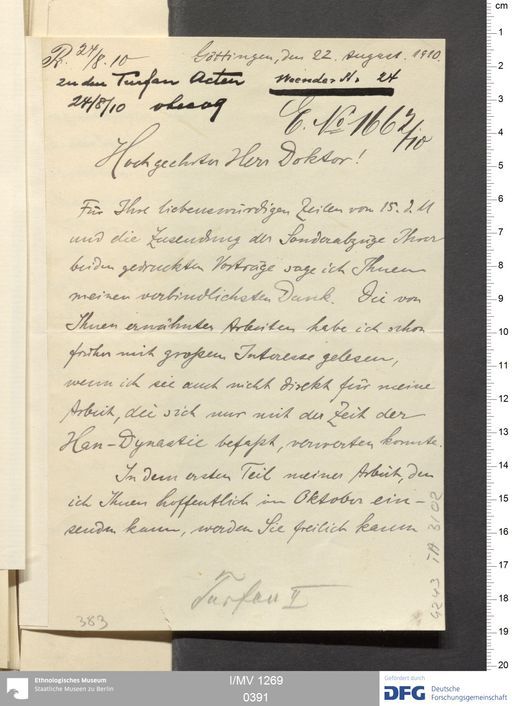 R. 24/8.10
Göttingen, den 22. August. 1910.
zu den Turfan Acten
Weender Str. 24
24/8/10
E. No 1667/10
Hochgeehrter Herr Doktor!
Für Ihre liebenswürdigen Zeilen vom 15. d. M
und die Zusendung der Sonderabzüge Ihrer
beiden gedruckten Vorträge sage ich Ihnen
meinen verbindlichsten Dank. Die von
Ihnen erwähnten Arbeiten habe ich schon
früher mit großem Interesse gelesen,
wenn ich sie auch nicht direkt für meine
Arbeit, die sich nur mit der Zeit der
Han-Dynastie befaßt, verwerten konnte.
In dem ersten Teil meiner Arbeit, den
ich Ihnen hoffentlich im Oktober ein-
senden kann, werden Sie freilich kaum
Turfan II
383
cm
1
2
3
4
5
6
7
8
9
10
11
12
13
14
15
16
17
18
19
20
Ethnologisches Museum
Staatliche Museen zu Berlin
I/MV 1269
0391
Gefördert durch
DFG Deutsche
Forschungsgemeinschaft